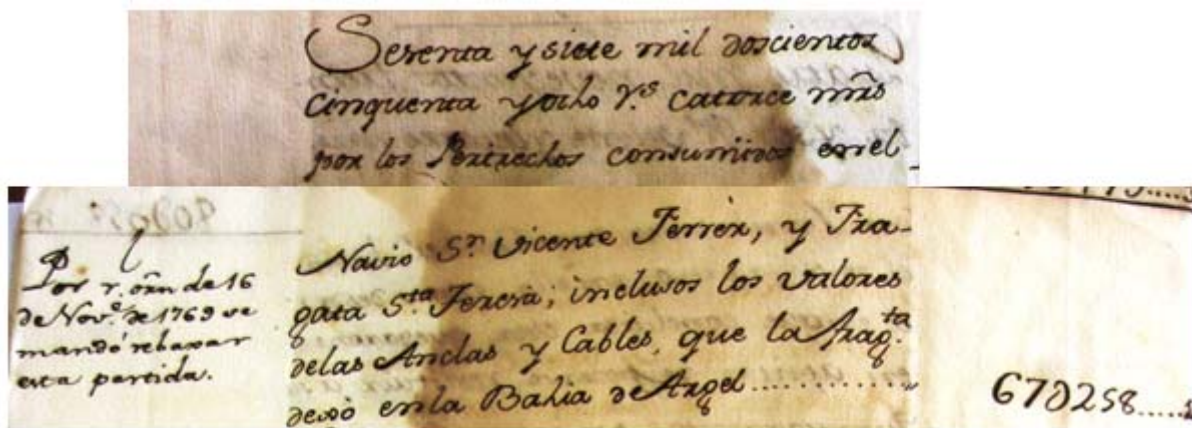 Sesenta y siete mil doscientos
cinquenta y ocho r.s catorce mrs̃
por los Pertrechos consumidos en el
Por r. orñ de 16
de Nov.e de 1769 se
mandó rebaxar
esta partida.
Navio S.n Vicente Ferrer, y Fra-
gata S.ta Teresa; inclusos los valores
de las Anclas y Cables, que la frag.ta
dexó en la Bahia de Argel ............. 67D258.....